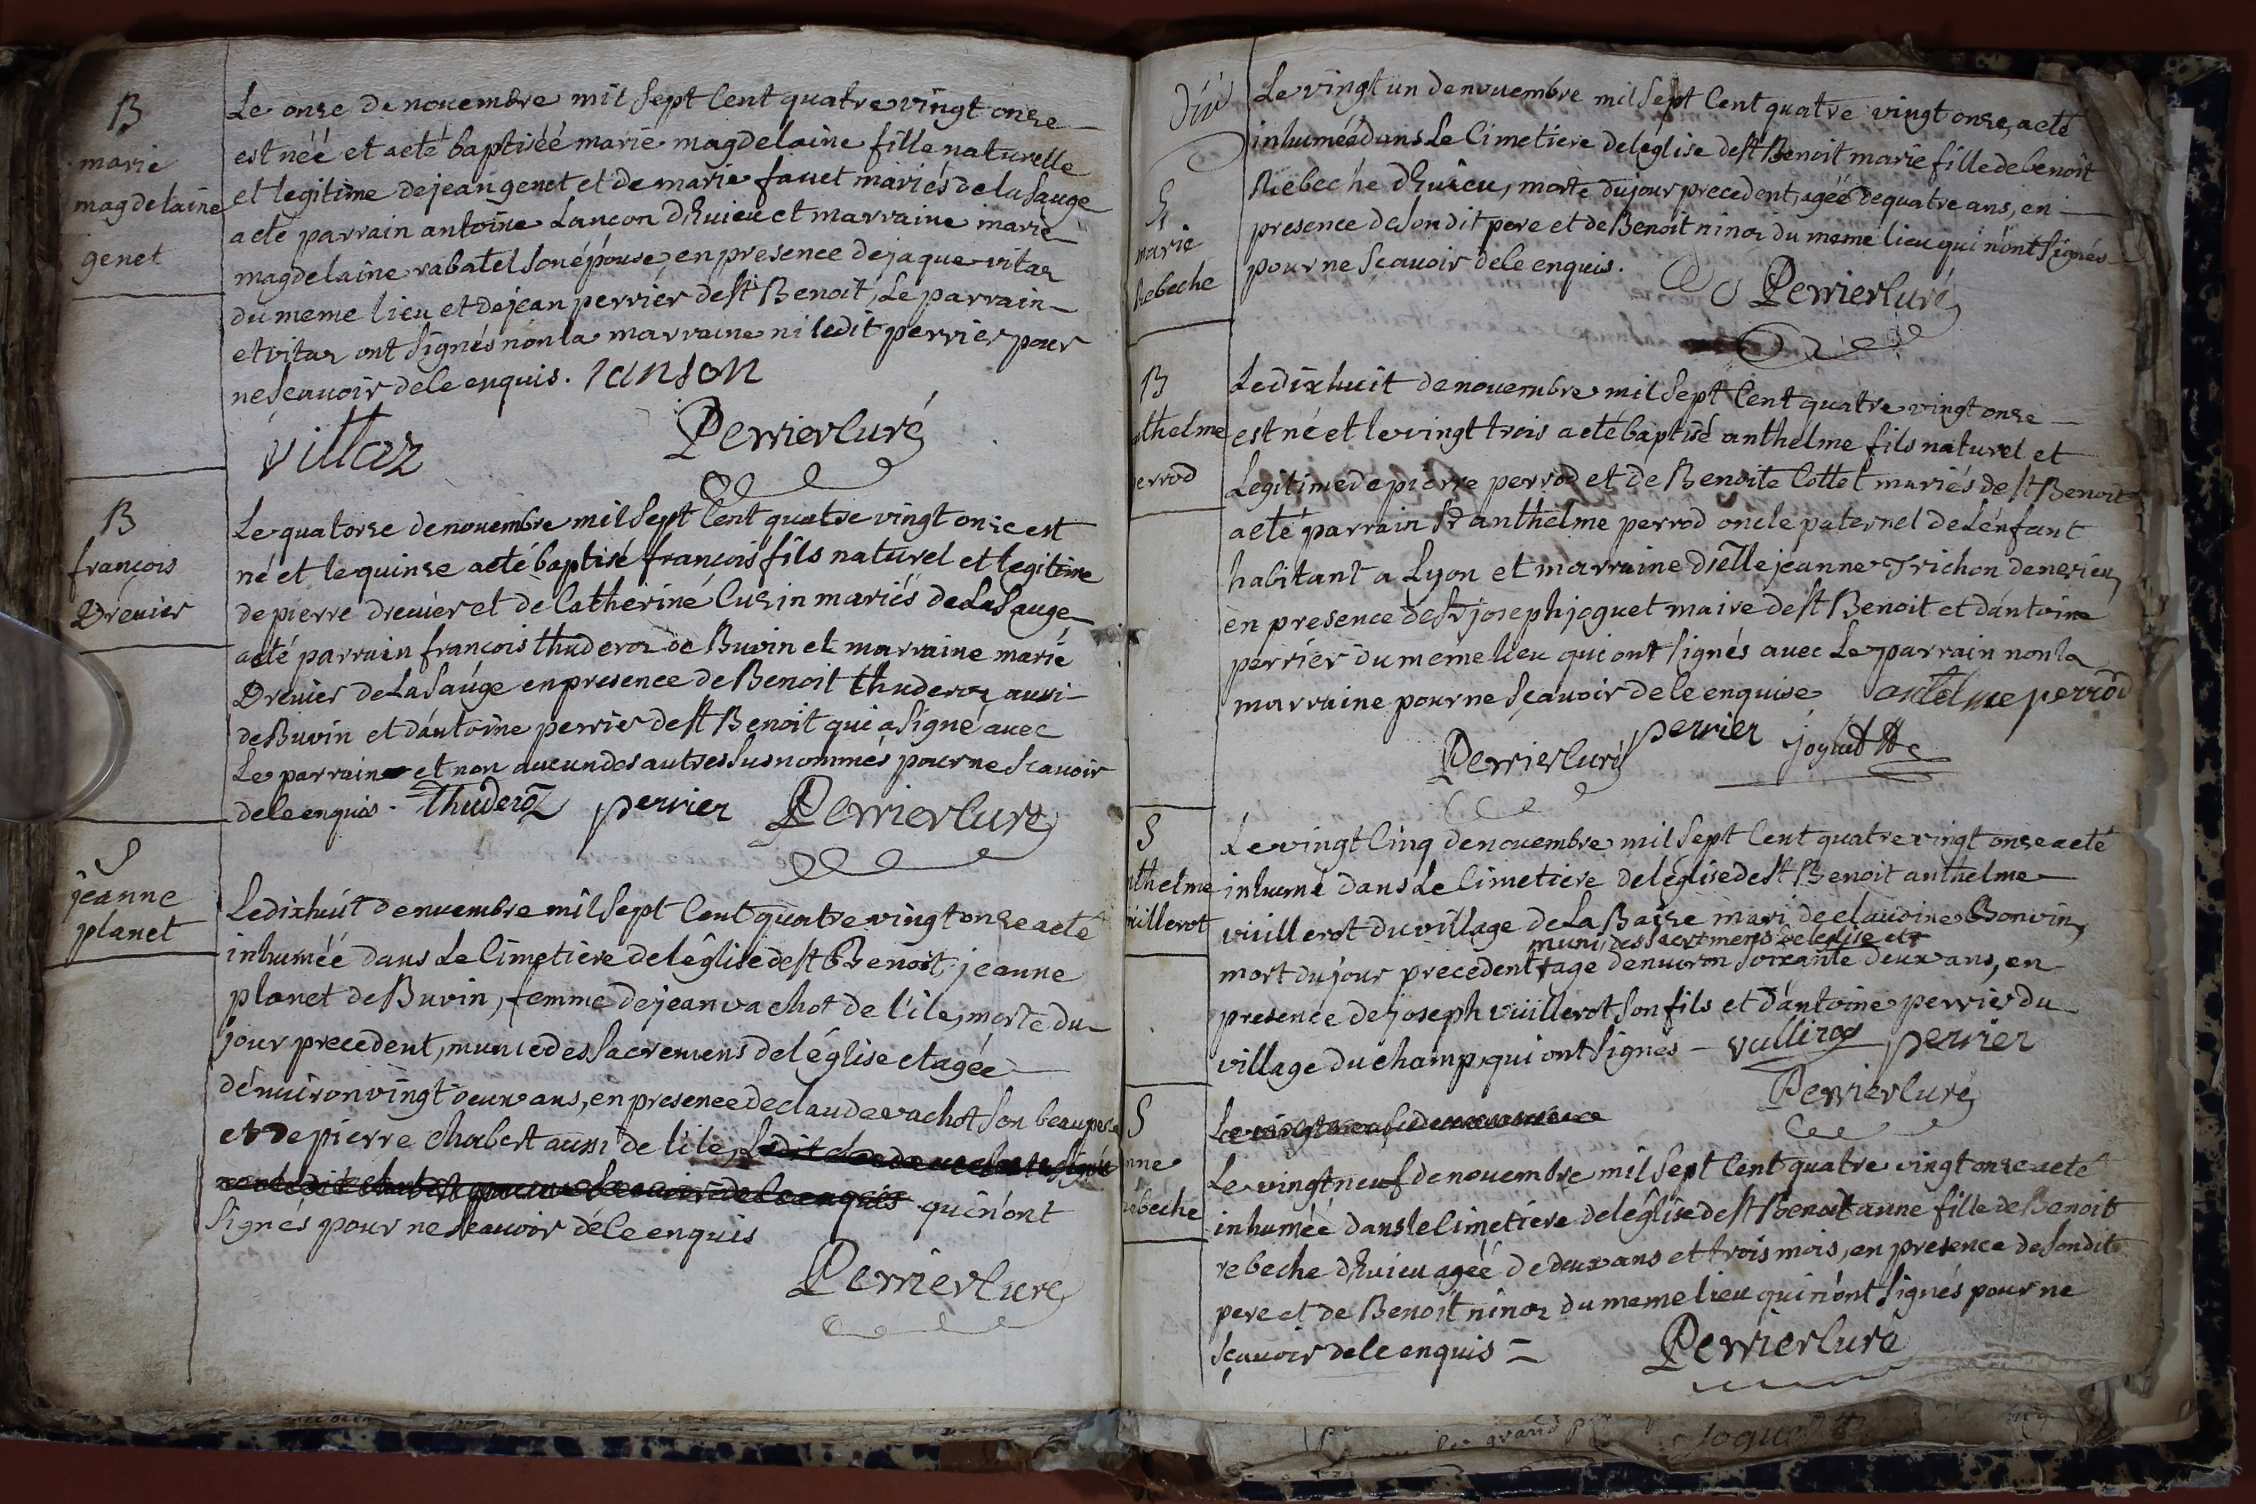 B
marie
magdelaine
genet
Le onze de novembre mil sept Cent quatre vingt onze
est néé et acté baptiséé marie magdelaine fille naturelle
et legitime de jean genet et de marie favet mariés de la sauge
acté parrain antoine Lancon d'Evieu et marraine marie
magdelaine rabatel son épouse, en presence de jaque vitaz
du meme lieu et de jean perrier de st Benoit, Le parrain
et vitaz ont signés non la marraine ni ledit perrier pour
ne scavoir de ce enquis. Lanson
villaz Perrier Curé
B
francois
Drevier
Le quatorze de novembre mil sept Cent quatre vingt onze est
né et le quinze acté baptisé francois fils naturel et legitime
de pierre drevier et de Catherine Cuzin mariés de La Sauge
acté parrain francois thuderoz de Buvin et marraine marie
Drevier de La Sauge en presence de Benoit thuderoz aussi
de Buvin et d'antoine perrier de st Benoit qui a signé avec
Le parrain et non aucun des autres susnommés pour ne scavoir
de ce enquis. Thuderoz perrier Perrier Curé
S
jeanne
planet
Le dixhuit de nuembre mil sept Cent quatre vingt onze acté
inhuméé dans Le Cimetière de l'église de st Benoit jeanne
planet de Buvin, femme de jean vachot de l'ile, morte du
jour precedent, munie des sacremens de l'église et agée
d'environ vingt deux ans, en presence de claude vachot son beaupere
et de pierre chabert aussi de l'ile, qui n'ont
signés pour ne scavoir de ce enquis
Perrier Curé
S
marie
Rebeche
Le vingt un de novembre mil sept Cent quatre vingt onze, acté
inhuméé dans Le Cimetiere de l'église de st Benoit marie fille de benoit
Rebeche d'Evieu, morte du jour precedent, agéé de quatre ans, en
presence de son dit pere et de Benoit ninoz du meme lieu qui n'ont signés
pour ne scavoir de ce enquis.
Perrier Curé
B
nthelme
perrod
Le dixhuit de novembre mil sept Cent quatre vingt onze
est né et le vingt trois acté baptisé anthelme fils naturel et
Legitime de pierre perrod et de Benoite Cottet mariés de st Benoit
acté parrain Sr anthelme perrod oncle paternel de L'énfant
habitant a Lyon et marraine dlle jeanne Trichon de nerieu,
en presence de Sr joseph joguet maire de st Benoit et d'antoine
perrier du meme lieu qui ont signés avec Le parrain non la
marraine pour ne scavoir de ce enquise antelme perrod
Perrier Curé perrier
S
nthelme
uillerot
Le vingt Cinq de novembre mil sept Cent quatre vingt onze acté
inhumé dans Le Cimetiere de l'église de st Benoit anthelme
vuillerot du village de La Baise mari de claudine Bonvin,
muni des sacremens de l'eglise et
mort du jour precedent agé d'environ soixante deux ans, en
presence de joseph vuillerot son fils et d'antoine perrier du
village du champ, qui ont signés vulliroz perrier
Perrier Curé
S
nne
rebeche
Le vingt neuf de novembre mil sept Cent quatre vingt onze acté
inhuméé dans le Cimetiere de l'église de st Benoit anne fille de Benoit
rebeche d'Evieu agéé de deux ans et trois mois, en presence de son dit
pere et de Benoit ninoz du meme lieu qui n'ont signés pour ne
scavoir de ce enquis =
Perrier Curé